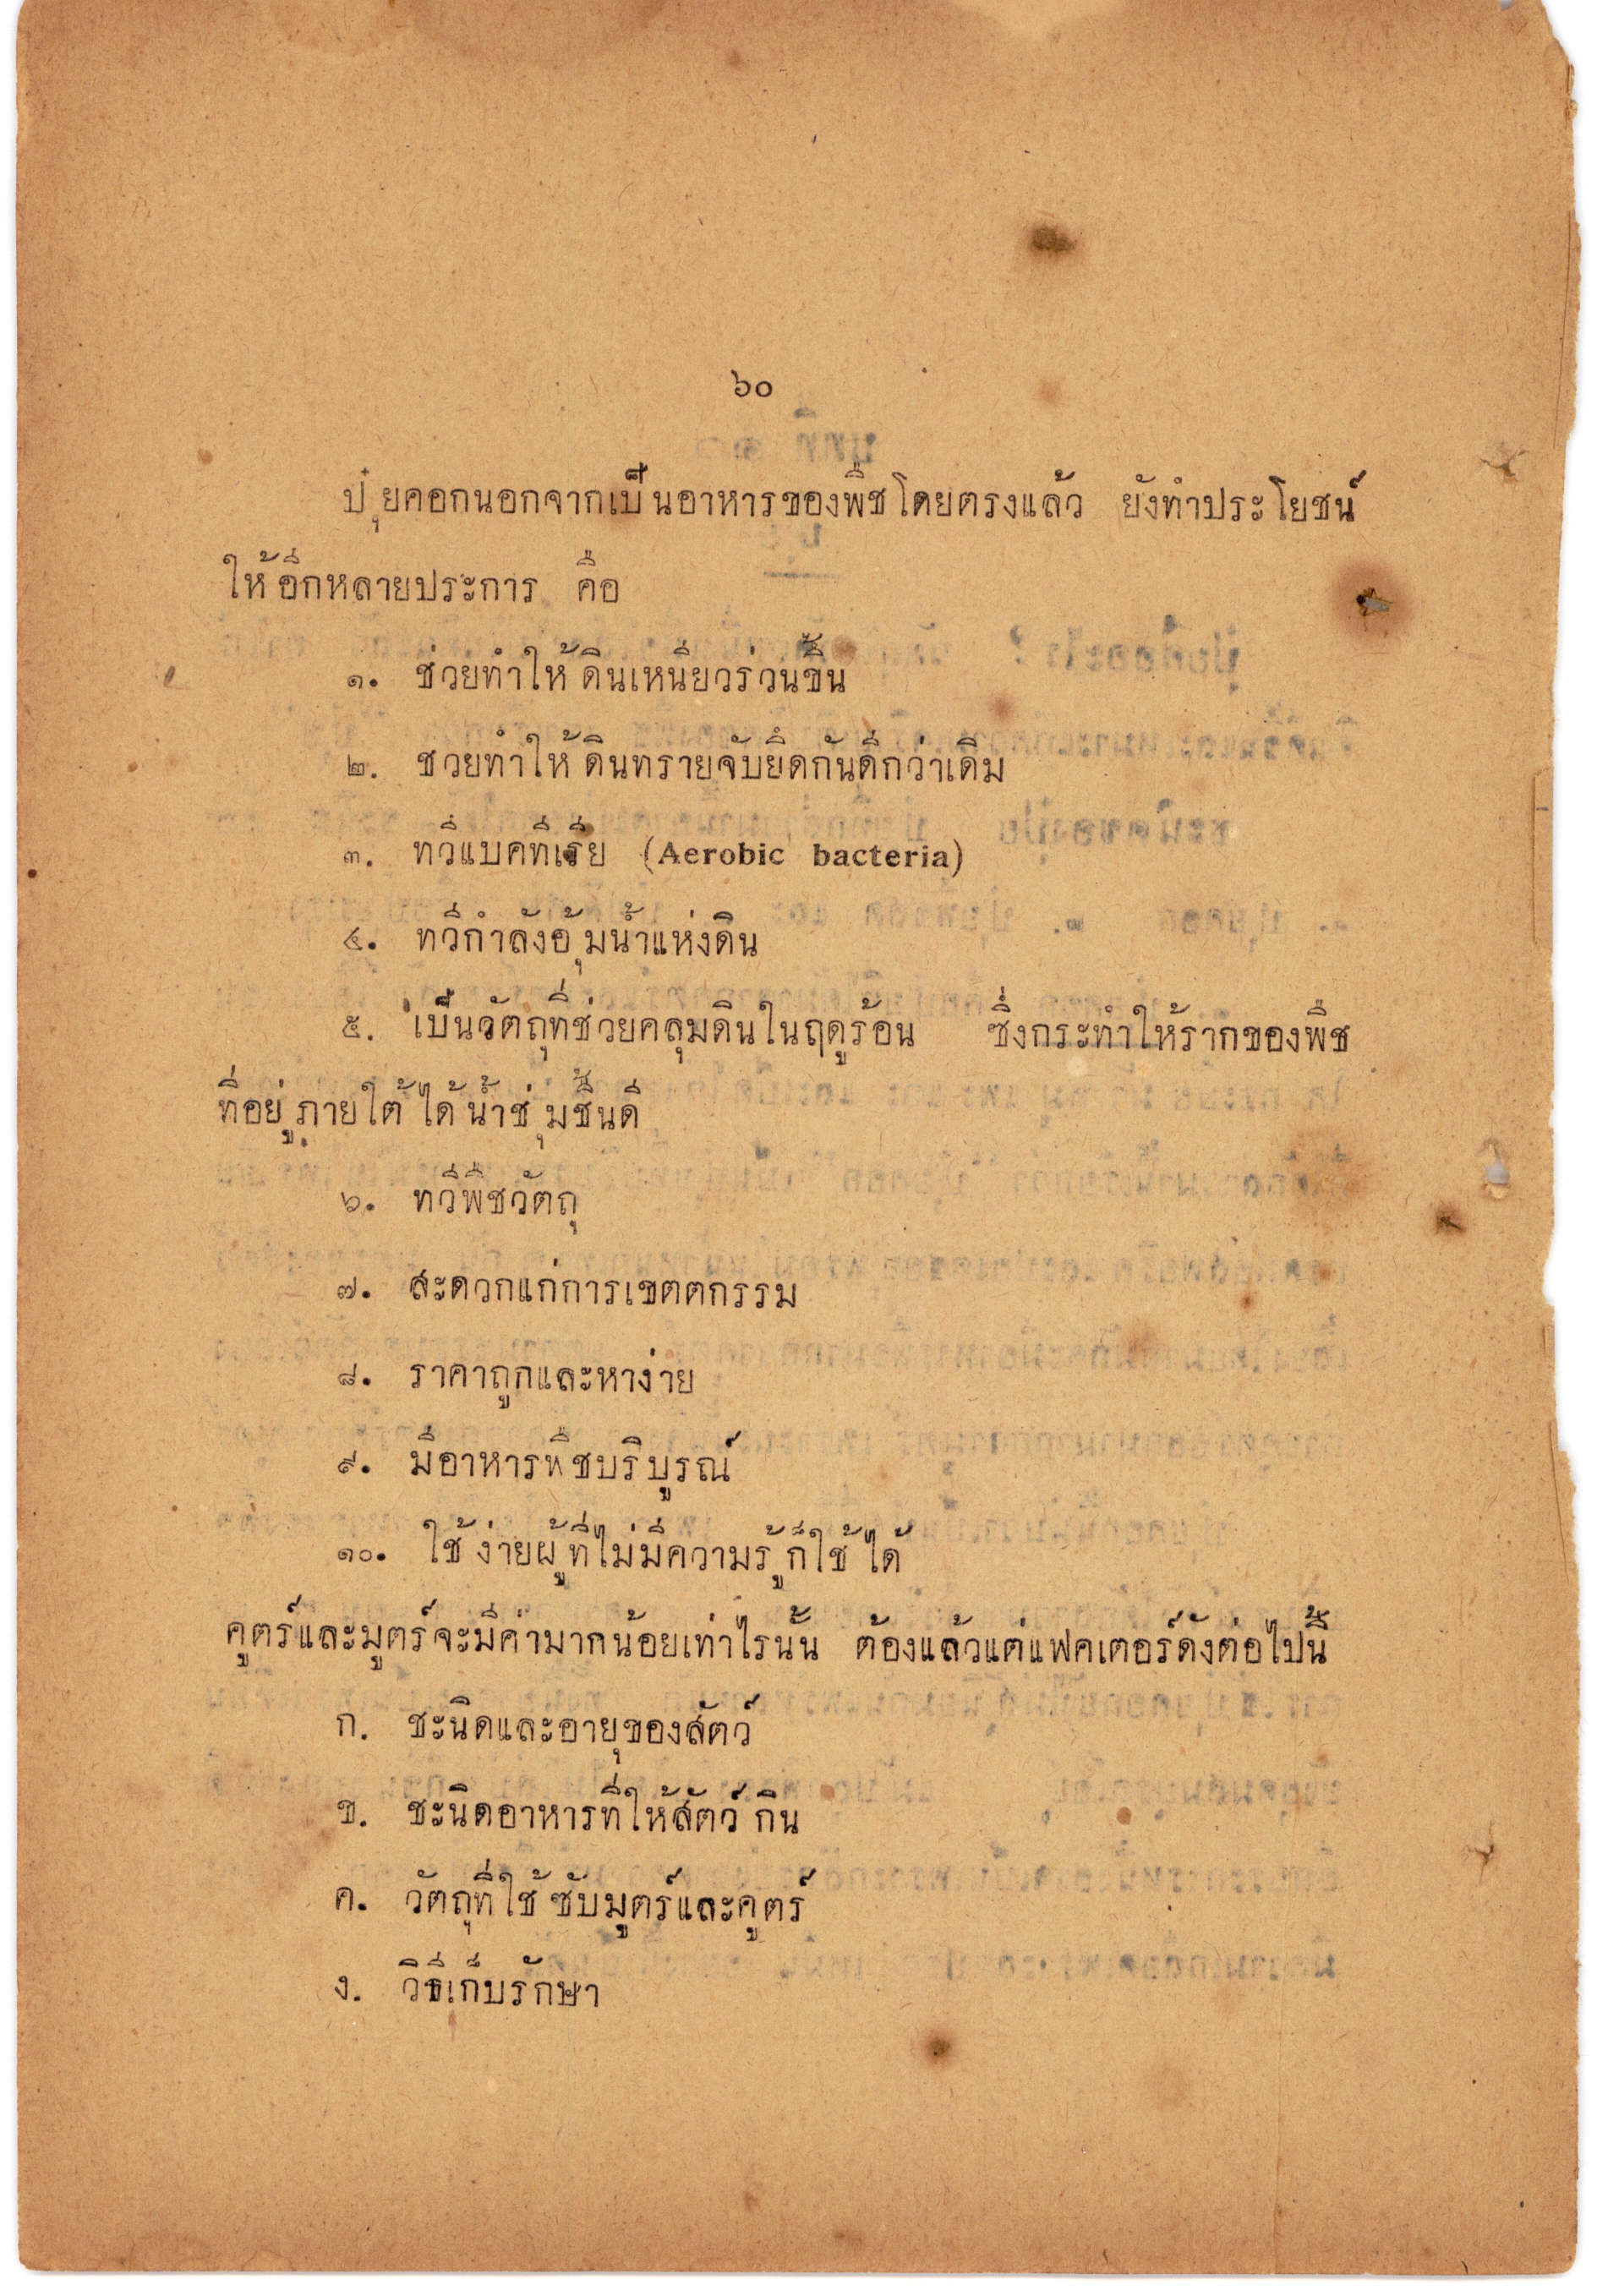 ๖๐
ปุ๋ยคอกนอกจากเป็นอาหารของพืชโดยตรงแล้ว ยังทำประโยชน์
ให้อีกหลายประการ คือ
๑. ช่วยทำให้ดินเหนียวร่วนขึ้น
๒. ชวยทำให้ดินทรายจับยึดกันดีกว่าเดิม
๓. ทวีแบคทีเรีย (Aerobic bacteria)
๔. ทวีกำลังอุ้มน้ำแห่งดิน
๕. เป็นวัตถุที่ช่วยคลุมดินในฤดูร้อน ซึ่งกระทำให้รากของพืช
ที่อยู่ภายใต้ได้น้ำชุ่มชื้นดี
๖. ทวีพืชวัตถุ
๗. สะดวกแก่การเขตตกรรม
๘. ราคาถูกและหาง่าย
๙. มีอาหารพืชบริบูรณ์
๑๐. ใช้ง่ายผู้ที่ไม่มีความรู้ก็ใช้ได้
คูตร์และมูตร์จะมีค่ามากน้อยเท่าไรนั้น ต้องแล้วแต่แฟคเตอร์ดังต่อไปนี้
ก. ชะนิดและอายุของสัตว์
ข. ชะนิดอาหารที่ให้สัตว์กิน
ค. วัตถุที่ใช้ซับมูตร์และคูตร์
ง. วิธีเก็บรักษา